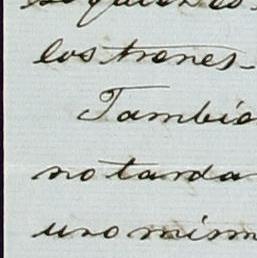 los trenes-
Tambie
no tarda
uno mism